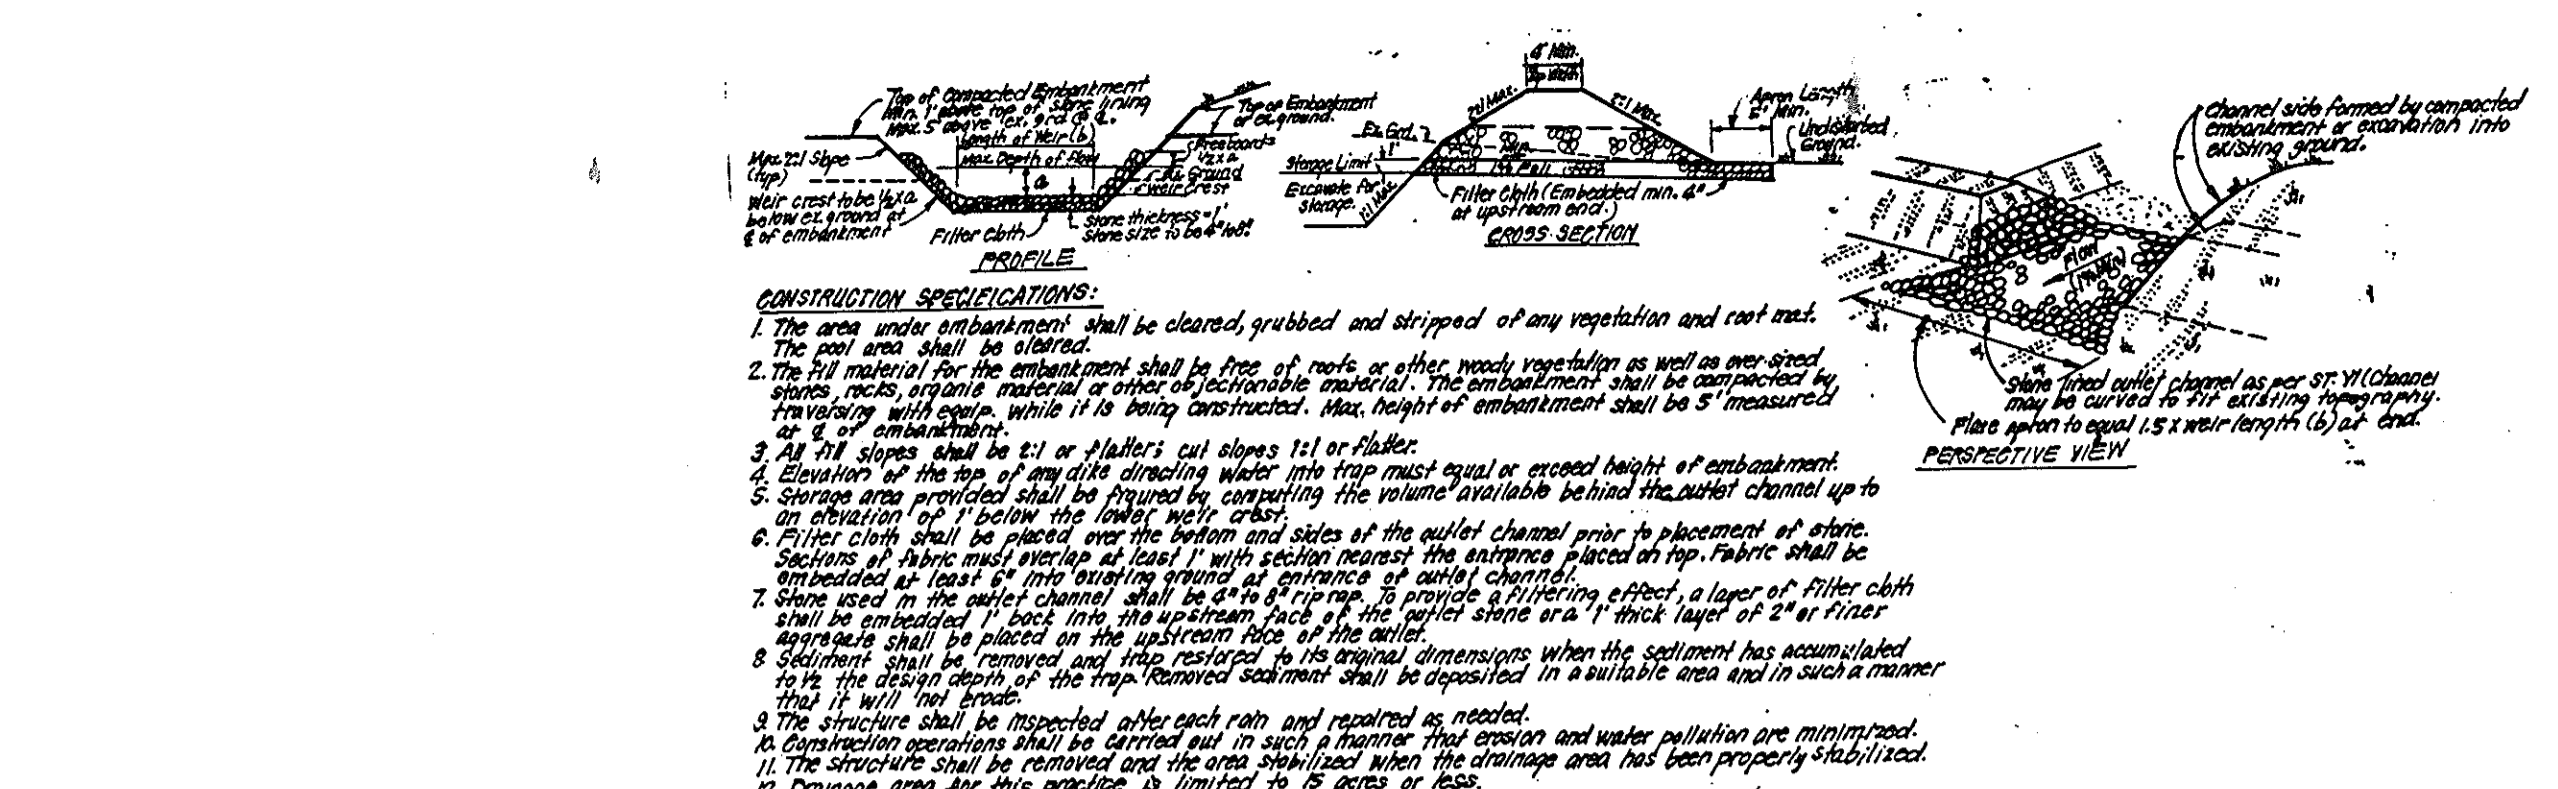 Top of Compacted Embankment
Min. 1' above top of stone lining
Max. 5' above ex. grd @ ℄.
Length of Weir (b)
Max Depth of Flow
a
Max 2:1 Slope
(typ)
Weir crest to be ½ x a
below ex. ground at
℄ of embankment
Filter Cloth
Top of Embankment
or ex ground.
Freeboard=
½ x a
Ex Ground
Weir Crest
Stone thickness = 1'
Stone size to be 4" to 8"
PROFILE
4' Min.
Top Width
2:1 Max.
2:1 Max.
Apron Length
5' Min.
Undisturbed
Ground.
Ex. Grd.
1'
Storage Limit
Excavate for
storage.
1:1 Max
Filter Cloth (Embedded min. 4"
at upstream end.)
CROSS SECTION
Channel side formed by compacted
embankment or excavation into
existing ground.
Flow
(1% Min)
Stone lined outlet channel as per ST. VI (Channel
may be curved to fit existing topography.
Flare apron to equal 1.5 x weir length (b) at end.
PERSPECTIVE VIEW
CONSTRUCTION SPECIFICATIONS:
1. The area under embankment shall be cleared, grubbed and stripped of any vegetation and root mat.
The pool area shall be cleared.
2. The fill material for the embankment shall be free of roots or other woody vegetation as well as over-sized
stones, rocks, organic material or other objectionable material. The embankment shall be compacted by
traversing with equip. while it is being constructed. Max. height of embankment shall be 5' measured
at ℄ of embankment.
3. All fill slopes shall be 2:1 or flatter; cut slopes 1:1 or flatter.
4. Elevation of the top of any dike directing water into trap must equal or exceed height of embankment.
5. Storage area provided shall be figured by computing the volume available behind the outlet channel up to
an elevation of 1' below the lower weir crest.
6. Filter cloth shall be placed over the bottom and sides of the outlet channel prior to placement of stone.
Sections of fabric must overlap at least 1' with section nearest the entrance placed on top. Fabric shall be
embedded at least 6" into existing ground at entrance of outlet channel.
7. Stone used in the outlet channel shall be 4" to 8" rip rap. To provide a filtering effect, a layer of filter cloth
shall be embedded 1' back into the upstream face of the outlet stone or a 1' thick layer of 2" or finer
aggregate shall be placed on the upstream face of the outlet.
8 Sediment shall be removed and trap restored to its original dimensions when the sediment has accumulated
to ½ the design depth of the trap. Removed sediment shall be deposited in a suitable area and in such a manner
that it will not erode.
9. The structure shall be inspected after each rain and repaired as needed.
10. Construction operations shall be carried out in such a manner that erosion and water pollution are minimized.
11. The structure shall be removed and the area stabilized when the drainage area has been properly stabilized.
12. Drainage area for this practice is limited to 15 acres or less.